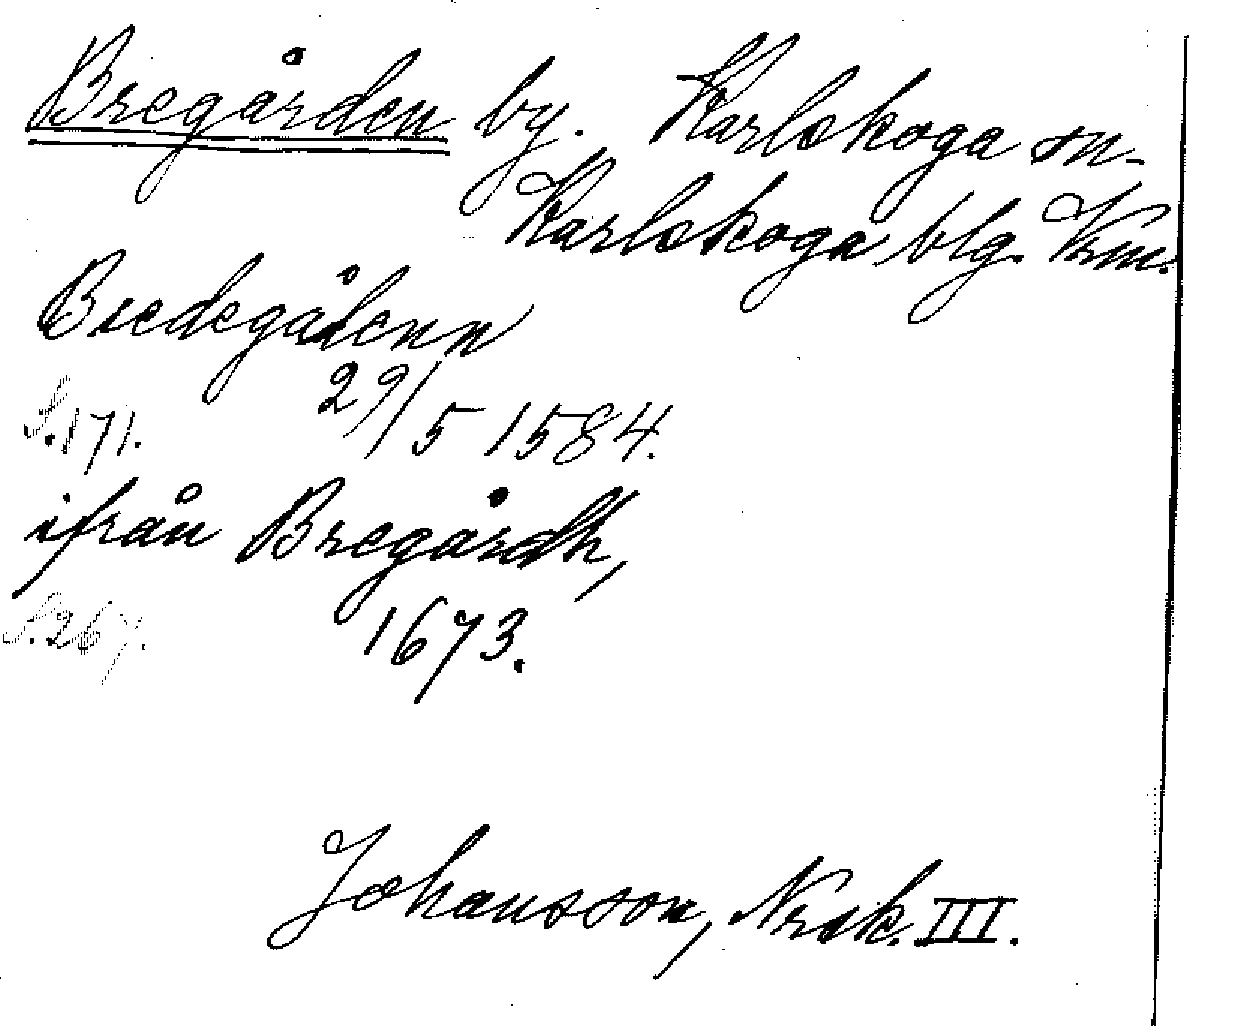 Bregården by. Karlskoga sn.
Karlskoga blg. Vrm.
Bredegålenn
29/5 1584.
S. 171.
ifrån Bregårdh,
1673.
S. 267.
Johansson, Nrsk. III.